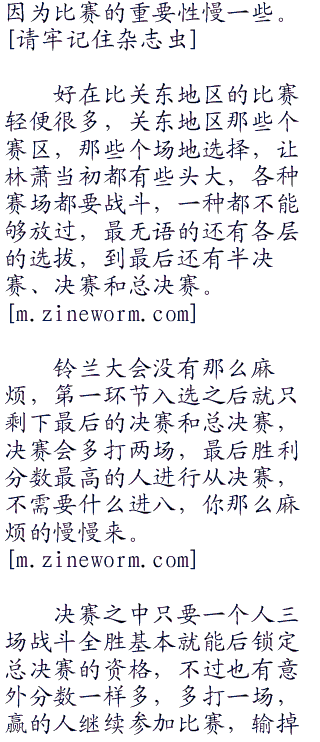 因为比赛的重要性慢一些。
[请牢记住杂志虫]
好在比关东地区的比赛
轻便很多，关东地区那些个
赛区，那些个场地选择，让
林萧当初都有些头大，各种
赛场都要战斗，一种都不能
够放过，最无语的还有各层
的选拔，到最后还有半决
赛、决赛和总决赛。
[m.zineworm.com]
铃兰大会没有那么麻
烦，第一环节入选之后就只
剩下最后的决赛和总决赛，
决赛会多打两场，最后胜利
分数最高的人进行从决赛，
不需要什么进八，你那么麻
烦的慢慢来。
[m.zineworm.com]
决赛之中只要一个人三
场战斗全胜基本就能后锁定
总决赛的资格，不过也有意
外分数一样多，多打一场，
赢的人继续参加比赛，输掉